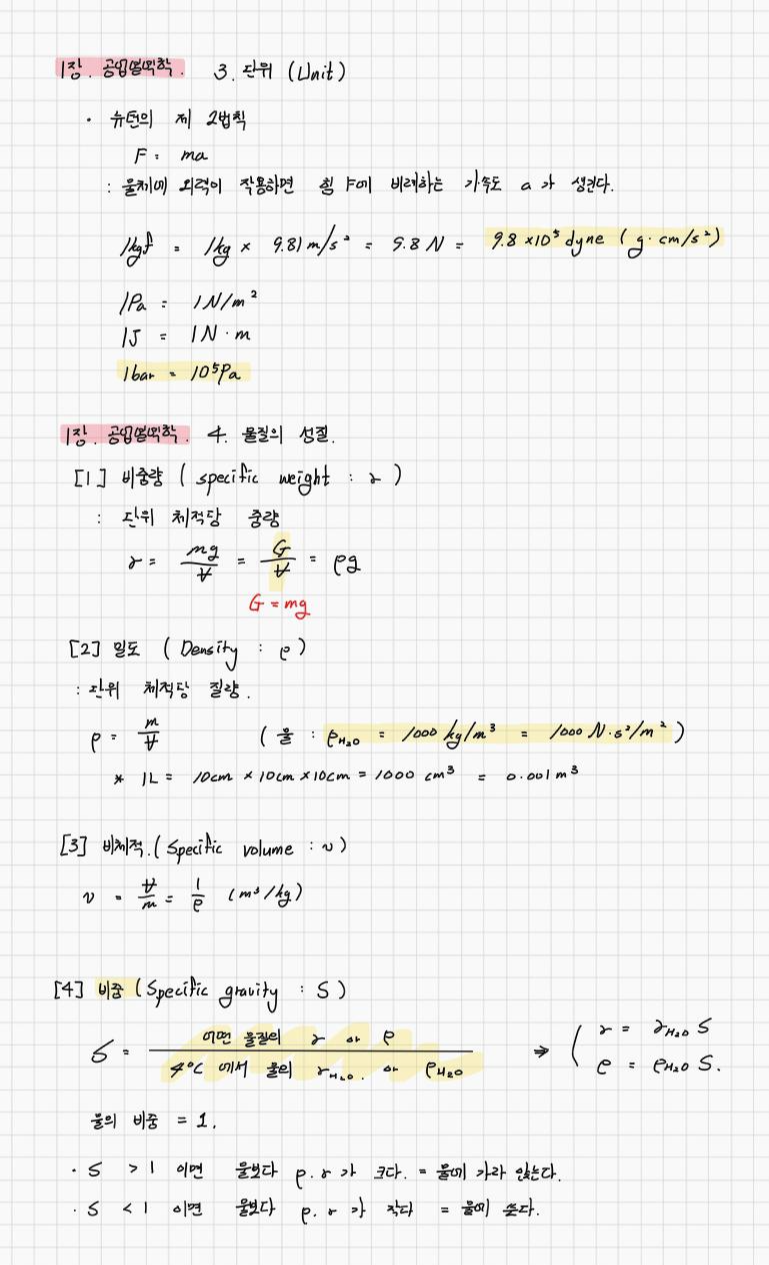 1장. 공업열역학. 3. 단위 (Unit)
· 뉴턴의 제 2법칙
F = ma
: 물체에 외력이 작용하면 힘 F에 비례하는 가속도 a가 생긴다.
1kgf = 1kg × 9.81 m/s² = 9.8 N = 9.8 ×10⁵ dyne (g·cm/s²)
1Pa = 1N/m²
1J = 1N·m
1bar = 10⁵Pa
1장. 공업열역학. 4. 물질의 성질.
[1] 비중량 ( specific weight : r )
: 단위 체적당 중량
r = mg/V = G/V = ρg
G = mg
[2] 밀도 ( Density : ρ )
: 단위 체적당 질량.
ρ = m/V ( 물 : ρH₂O = 1000 kg/m³ = 1000 N·s²/m² )
* 1L = 10cm × 10cm × 10cm = 1000 cm³ = 0.001 m³
[3] 비체적. ( Specific volume : v )
v = V/m = 1/ρ (m³/kg)
[4] 비중 ( Specific gravity : S )
S = 어떤 물질의 r or ρ / 4°C 에서 물의 rH₂O. or ρH₂O ⇒ ( r = rH₂O S
ρ = ρH₂O S.
물의 비중 = 1.
· S > 1 이면 물보다 ρ. r 가 크다. = 물에 가라 앉는다.
· S < 1 이면 물보다 ρ. r 가 작다 = 물에 뜬다.